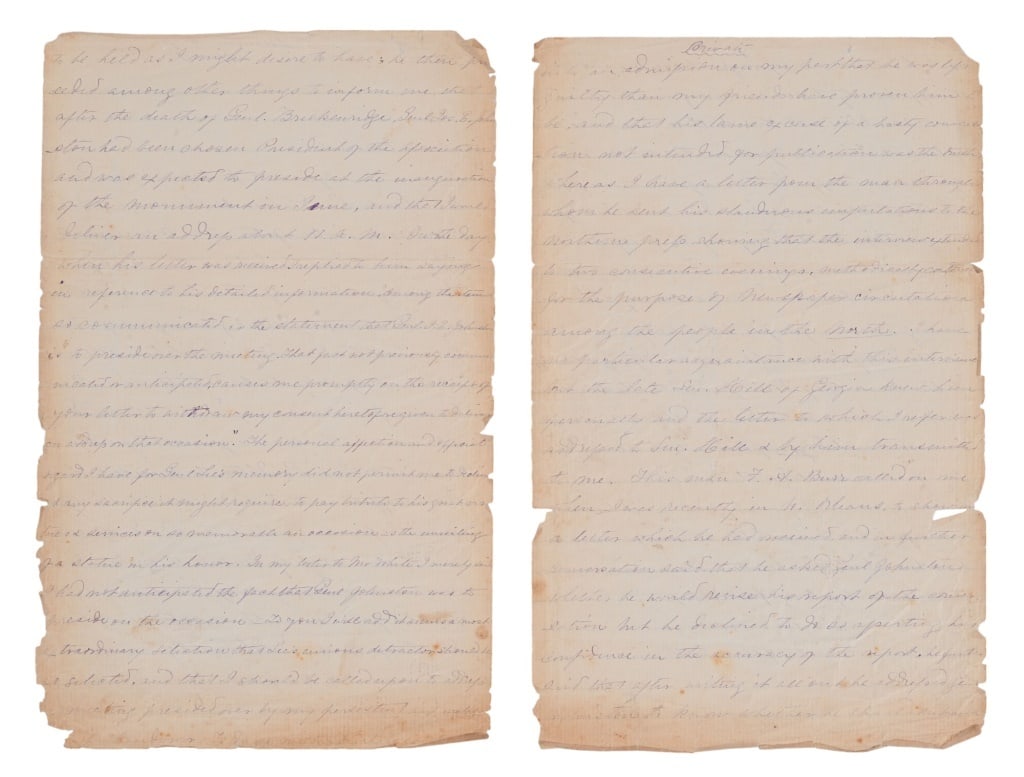 to be held as I might desire to have; he then pro
ceeded among other things to inform me, that
after the death of Genl. Breckenridge, Genl. Jos. E. John
ston had been chosen President of the association
and was expected to preside at the inauguration
of the monument in June, and that I would
deliver an address about 11. A. M. On the day
when his letter was received I replied to him saying
in reference to his detailed information, "Among the items
so communicated is the statement, that Genl. J. E. Johnston
is to preside over the meeting. That fact not previously commu
nicated or anticipated, causes me promptly on the receipt of
your letter to withdraw my consent heretofore given to deliver
an address on that occasion." The personal affection and
regard I have for Genl Lee's memory did not permit me to decline
any sacrifice it might require to pay tribute to his
services on so memorable an occasion as the unveiling
of a statue in his honor. In my letter to I merely said
I had not anticipated the fact that Genl Johnston was to
preside on the occasion. To you I will add it seems a most
extraordinary that Lee's envious detractor should be
selected, and that I should be called upon to address
a meeting presided over by my persistent
Private
to an admission on my part that he was less
guilty than my friends have proven him to
be, and that his lame excuse of a hasty conversa
tion not intended for publication was the truth
whereas I have a letter from the man through
whom he sent his slanderous imputations to the
northern press showing that the interview extended
to two consecutive evenings, methodically
for the purpose of newspaper circulation
among the people in the north. I have
no particular acquaintance with this interviewer
but the late Sen. Hill of Georgia knew him
personally and the letter to which I refer was
addressed to Sen. Hill & by him transmitted
to me. This man F. A. Burr called on me
when I was recently in N. Orleans, to show me
a letter which he had received and in further
conversation said that he asked Genl Johnston
whether he would revise his report of the conver
sation but he declined to do so asserting his
confidence in the accuracy of the report. He
said that after writing it all out he addressed
Johnston to know whether he